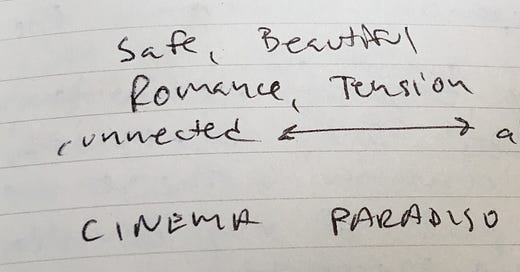 Safe, Beautiful
Romance, Tension
connected ⟷ a
CINEMA PARADISO